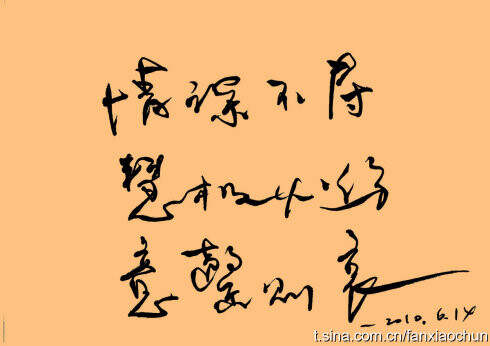 情深不寿
慧极必伤
意则衰
—2010.6.14
t.sina.com.cn/fanxiaochun